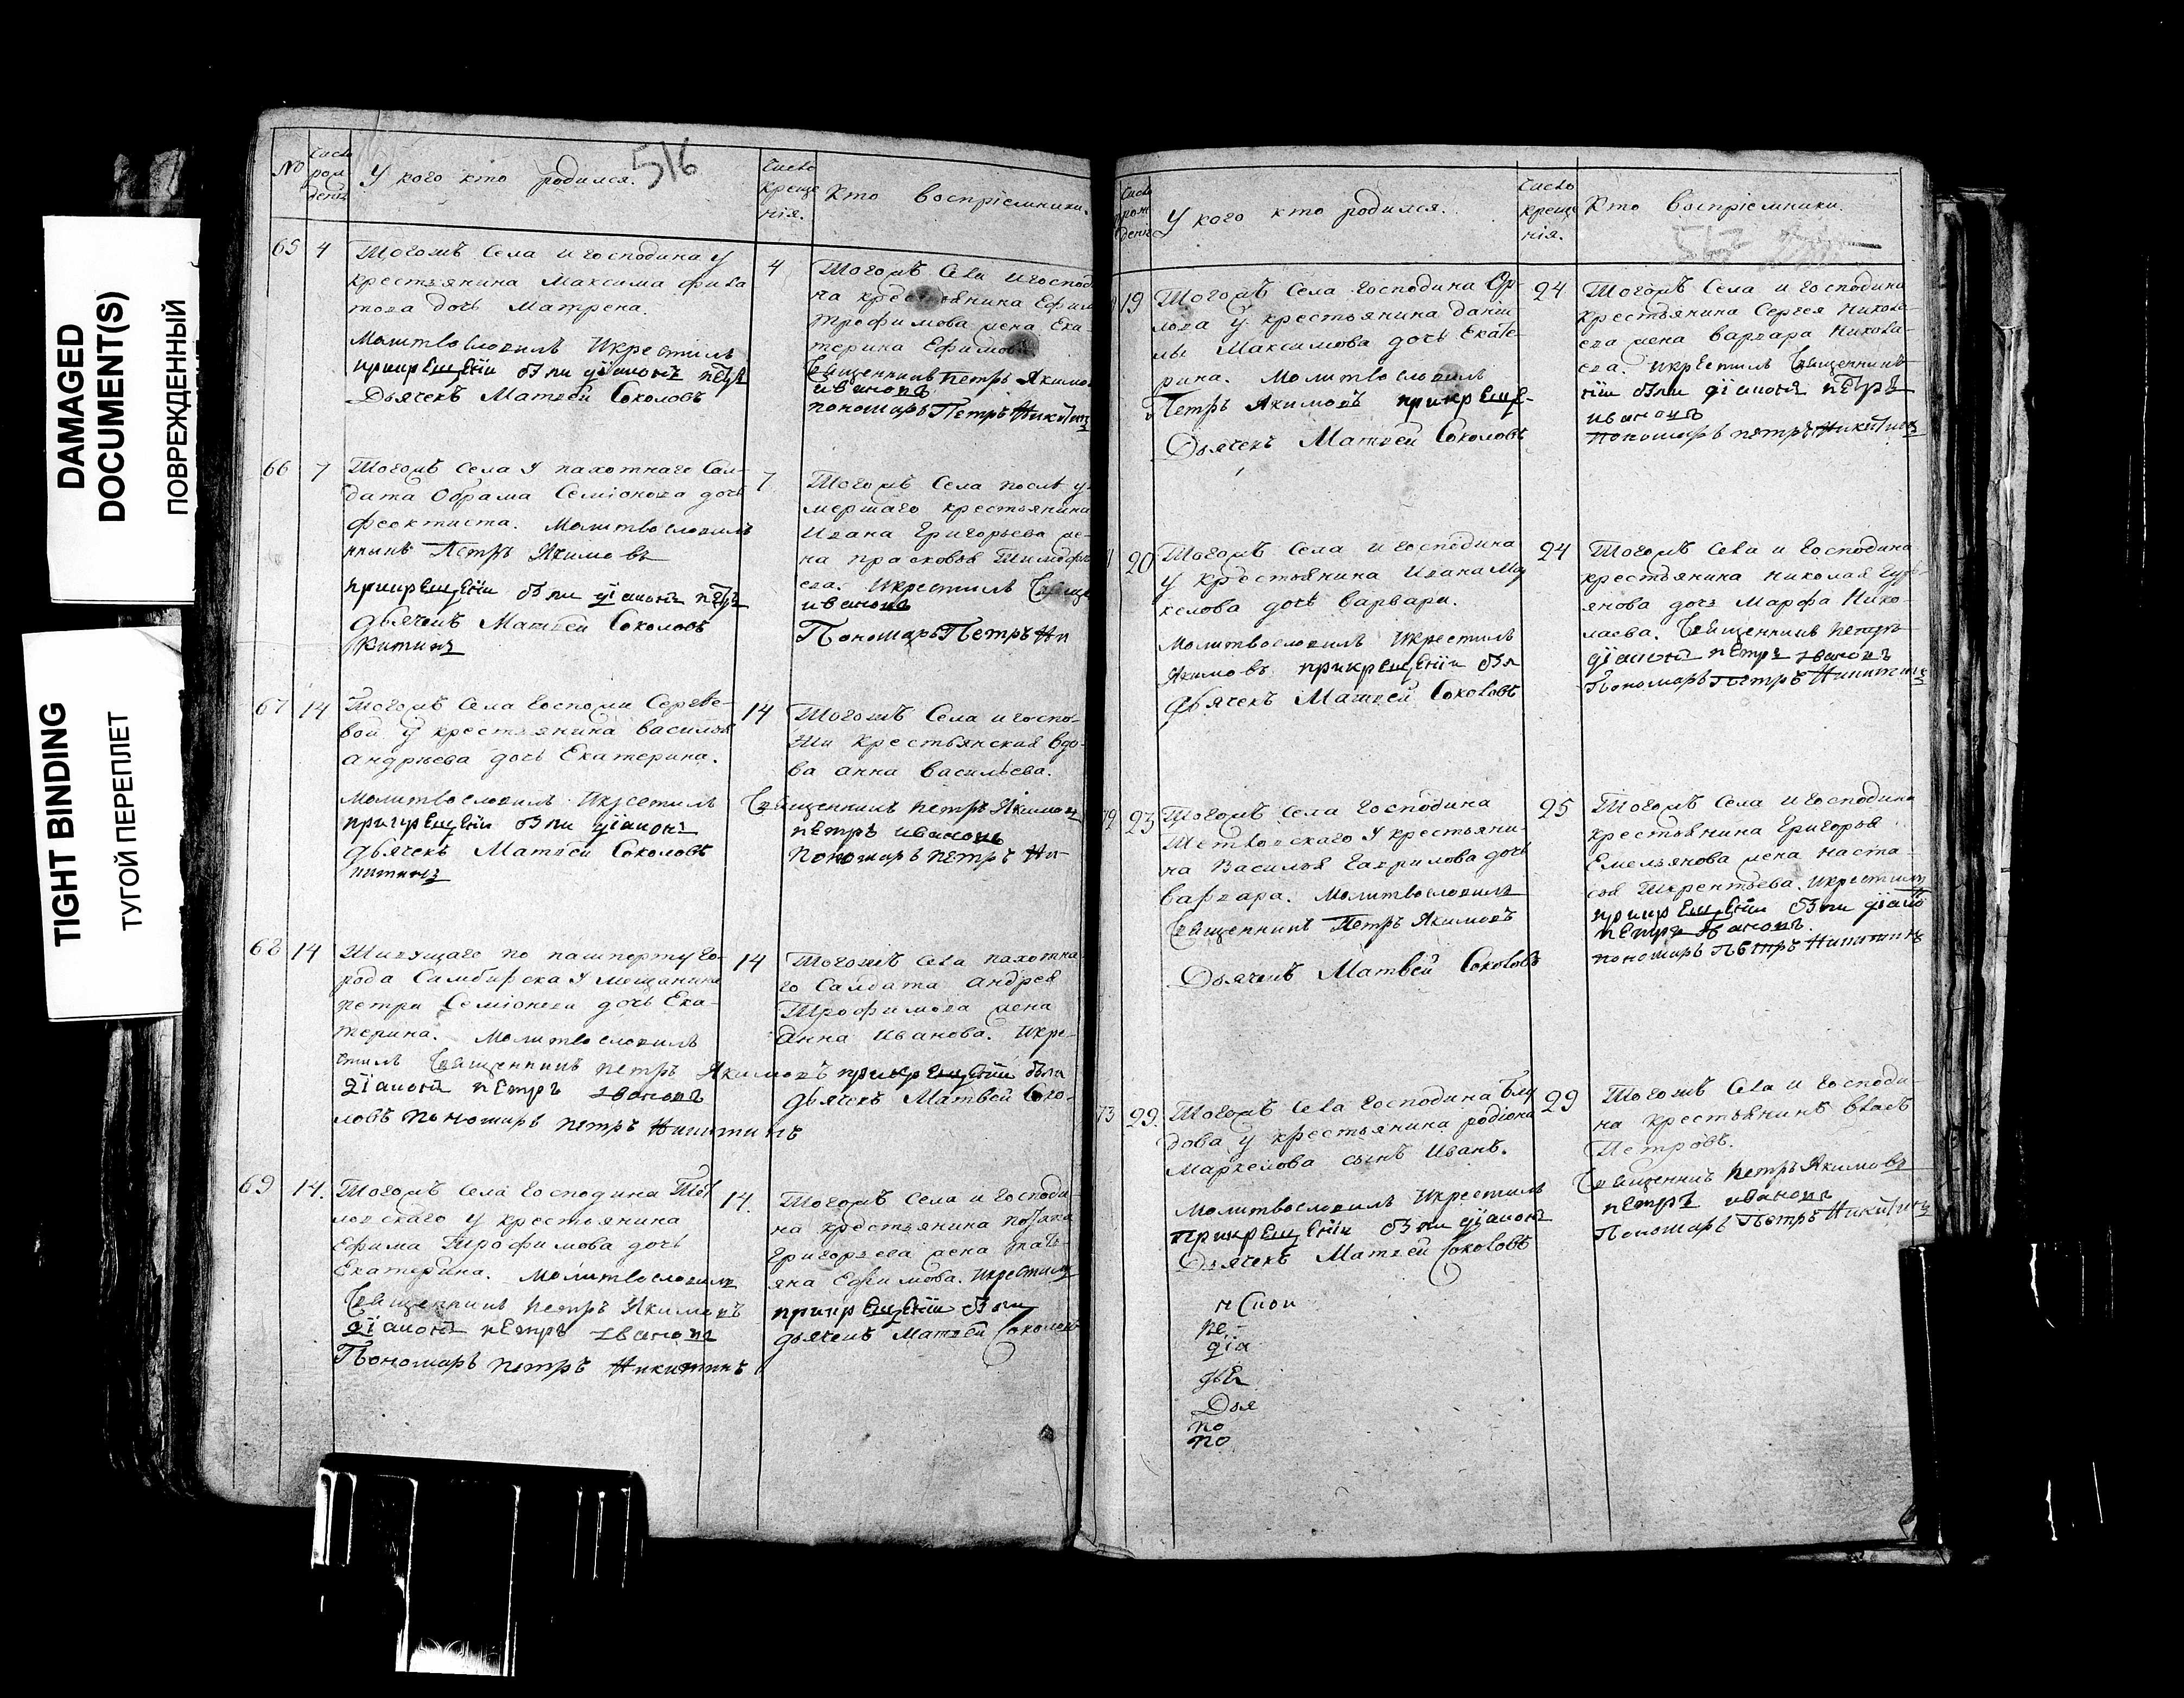 DAMAGED
DOCUMENT(S)
ПОВРЕЖДЕННЫЙ
TIGHT BINDING
ТУГОЙ ПЕРЕПЛЕТ
№
Число рождения
У кого кто родился.
516
Число
креще
нія.
Кто воспріемники.
65
4
Тогожъ Села и господина у
крестьянина Максима фила
това дочь Матрена.
Молитвословилъ Икрестилъ
прикрещеніи были діаконъ петръ
Дьячекъ Матвей Соколовъ
4
Тогожъ Села игоспод
на крестьянина Ефим
Трофимова жена Ека
терина Ефимова
Священникъ Петръ Якимо
ивановъ
пономарь Петръ Никитинъ
66
7
Тогожъ Села У пахотнаго Сал-
дата Обрама Семіонова дочь
феоктиста. Молитвословилъ
нникъ Петръ Якимовъ
прикрещеніи были діаконъ петръ
дьячекъ Матвей Соколовъ
Китинъ
7
Тогожъ Села послѣ у-
мершаго крестьянина
Ивана Григорьева же-
на прасковья Тимофе
ева. Икрестилъ Свяще
ивановъ
Пономарь Петръ Ни
67
14
Тогожъ Села Госпожи Сергѣе-
вой у крестьянина василья
андрѣева дочь Екатерина.
Молитвословилъ Икрестилъ
прикрещеніи были діаконъ
дьячекъ Матвей Соколовъ
китинъ
14
Тогожъ Села игоспо-
жи крестьянская вдо-
ва анна васильева.
Священникъ петръ Якимовъ
петръ ивановъ
пономарь петръ Ни-
68
14
Живущаго по пашпорту го-
рода Самбирска У мещанина
петра Семіонова дочь Ека-
терина. Молитвословилъ
стилъ Священникъ петръ Якимовъ прикрещеніи были
діаконъ петръ ивановъ
ловъ пономарь петръ Никитинъ
14
Тогожъ Села пахотна
го Салдата андрея
Трофимова жена
анна Иванова. Икре-
дьячекъ Матвей Соко-
69
14.
Тогожъ Села Господина
ловскаго у крестьянина
Ефима Трофимова дочь
Екатерина. Молитвословилъ
Священникъ петръ Якимовъ
діаконъ петръ ивановъ
Пономарь петръ Никитинъ
14.
Тогожъ Села и господи-
на крестьянина
Григорьева жена тать-
яна Ефимова. Икрестилъ
прикрещеніи были
дьячекъ Матвей Соколовъ
У кого кто родился.
Число
креще
нія.
Кто воспріемники.
19
Тогожъ Села Господина Ор-
лова у крестьянина дани
лы Максимова дочь Екате-
рина. Молитвословилъ
Петръ Якимовъ прикреще-
Дьячекъ Матвей Соколовъ
24
Тогожъ Села и господина
крестьянина Сергея Никола-
ева жена варвара Никола-
ева. Икрестилъ Священникъ
ніи были діаконъ петръ
ивановъ
Пономарь петръ Никитинъ
20
Тогожъ Села и господина
у крестьянина Ивана Мар
келова дочь варвара.
Молитвословилъ Икрестилъ
Якимовъ прикрещеніи бы
дьячекъ Матвей Соколовъ
24
Тогожъ Села и господина
крестьянина николая гурь
янова дочь Марфа Нико-
лаева. Священникъ петръ
діаконъ петръ ивановъ
Пономарь Петръ Никитинъ
72
23
Тогожъ Села Господина
Метловскаго У крестьяни-
на Василья Гаврилова дочь
варвара. Молитвословилъ
Священникъ Петръ Якимовъ
Дьячекъ Матвей Соколовъ
25
Тогожъ Села и господина
крестьянина Григорья
Емельянова жена наста-
сья Терентьева. Икрестилъ
прикрещеніи были діако
петръ ивановъ.
пономарь Петръ Никитинъ
73
29.
Тогожъ Села Господина Блу
дова у крестьянина родіона
Маркелова сынъ Иванъ.
Молитвословилъ Икрестилъ
Прикрещеніи были діаконъ
Дьячекъ Матвей Соколовъ
29
Тогожъ Села и Господи-
на крестьянинъ власъ
Петровъ.
Священникъ петръ Якимовъ
петръ ивановъ
Пономарь Петръ Никитинъ
пе
діа
дье
Дья
по
по